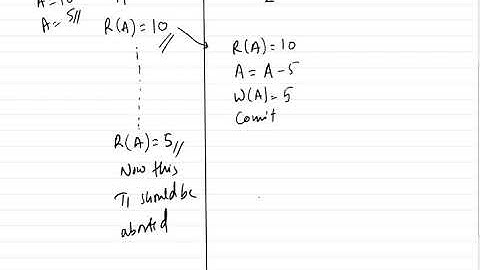 A = 5//
R(A) = 10
R(A) = 10
A = A - 5
W(A) = 5
Comit
R(A) = 5//
Now this
T1 should be
aborted